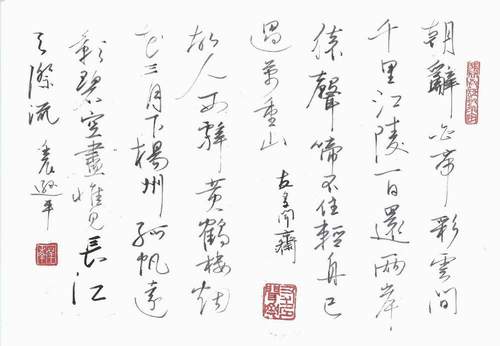 朝辭白帝彩雲間
千里江陵一日還兩岸
猿聲啼不住輕舟已
過萬重山 友多聞齋
故人西辭黃鶴樓烟
花三月下楊州孤帆遠
影碧空盡惟見長江
天際流